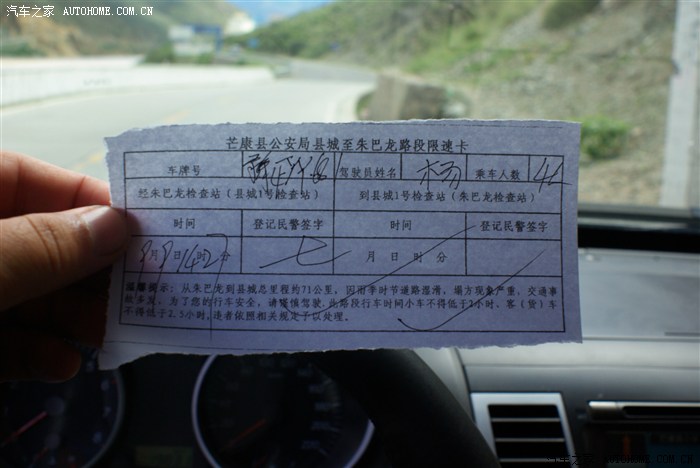 汽车之家 AUTOHOME.COM.CN
芒康县公安局县城至朱巴龙路段限速卡
车牌号 驾驶员姓名 杨 乘车人数
经朱巴龙检查站（县城1号检查站） 到县城1号检查站（朱巴龙检查站）
时间 登记民警签字 时间 登记民警签字
月 日 时 分 月 日 时 分
温馨提示：从朱巴龙到县城总里程约71公里，因雨季时节道路湿滑，塌方现象严重，交通事
故多发，为了您的行车安全，请谨慎驾驶.此路段行车时间小车不得低于2小时，客（货）车
不得低于2.5小时。违者依照相关规定予以处理。